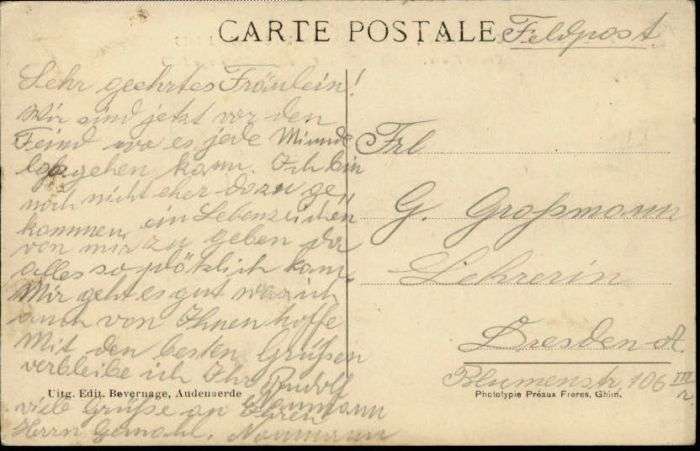 CARTE POSTALE
Feldpost
Sehr geehrtes Fräulein!
Wir sind jetzt vor den
Feind wo es jede Minute
losgehen kann. Ich bin
noch nicht eher dazu ge
kommen, ein Lebenzeichen
von mir zu geben da
alles so plötzlich kam.
Mir geht es gut was ich
auch von Ihnen hoffe
Mit den besten Grüßen
verbleibe ich Ihr Rudolf
Naumann
viele Grüße an Ihren
Herrn Gemahl. Naumann
Uitg. Edit. Bevernage, Audenaerde
Frl
G. Großmann
Lehrerin
Dresden-A.
Blumenstr. 106 III
r.
Phototypie Préaux Freres, Ghlin.